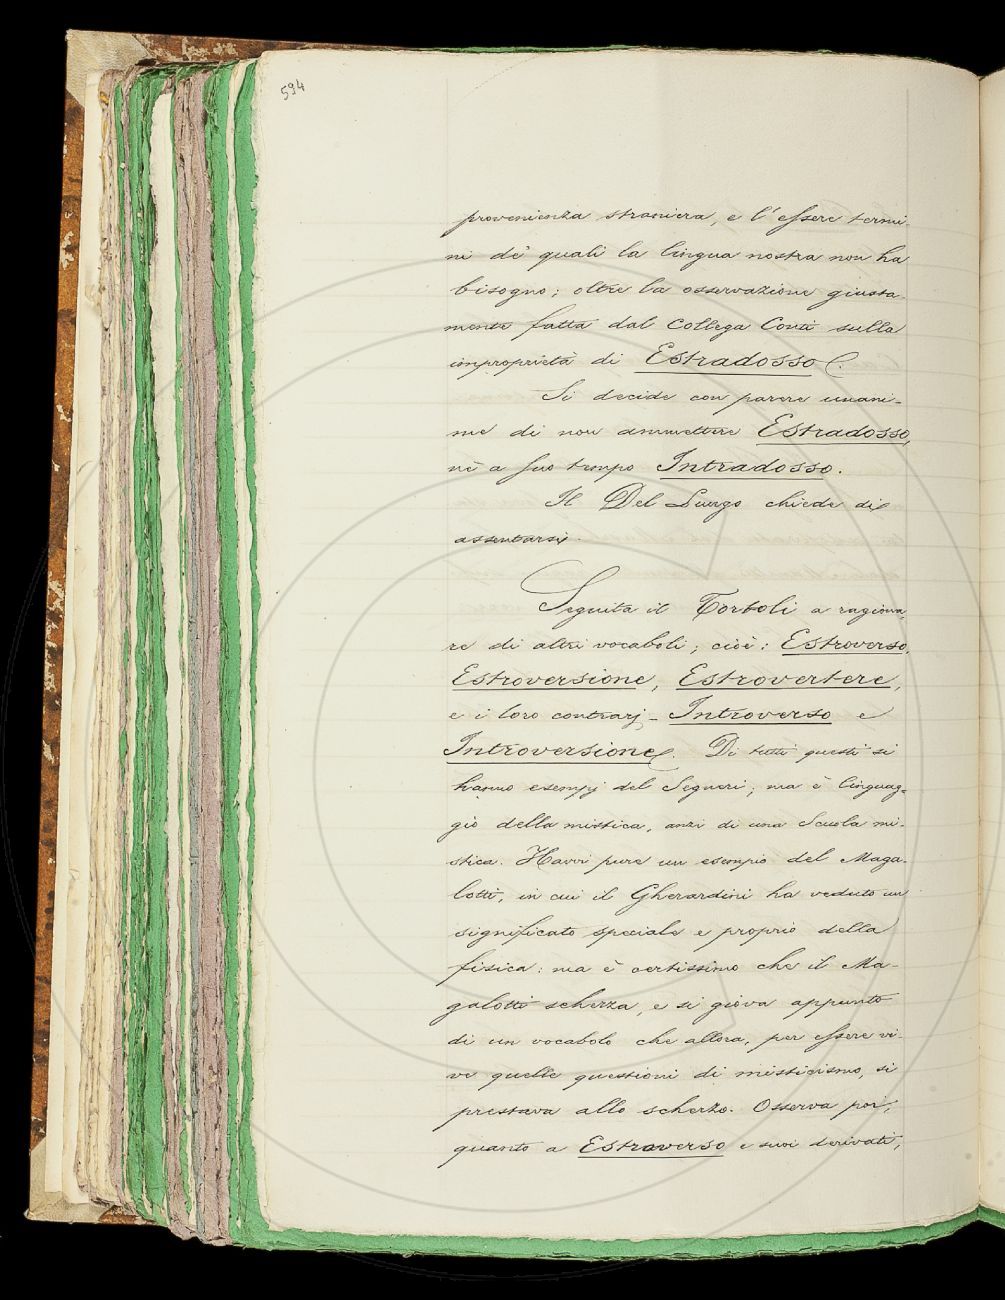 594
provenienza straniera, e l'essere termi-
ni de' quali la lingua nostra non ha
bisogno; oltre la osservazione giusta-
mente fatta dal Collega Conti sulla
improprietà di Estradosso.
Si decide con parere unani-
me di non ammettere Estradosso,
nè a suo tempo Intradosso.
Il Del Lungo chiede di
assentarsi.
Seguita il Tortoli a ragiona-
re di altri vocaboli; cioè: Estroverso,
Estroversione, Estrovertere,
e i loro contrarj - Introverso e
Introversione. Di tutti questi si
hanno esempj del Segneri; ma è linguag-
gio della mistica, anzi di una Scuola mi-
stica. Havvi pure un esempio del Maga-
lotti, in cui il Gherardini ha veduto un
significato speciale e proprio della
fisica: ma è certissimo che il Ma-
galotti scherza, e si giova appunto
di un vocabolo che allora, per essere vi-
ve quelle questioni di misticismo, si
prestava allo scherzo. Osserva poi,
quanto a Estraverso e suoi derivati,